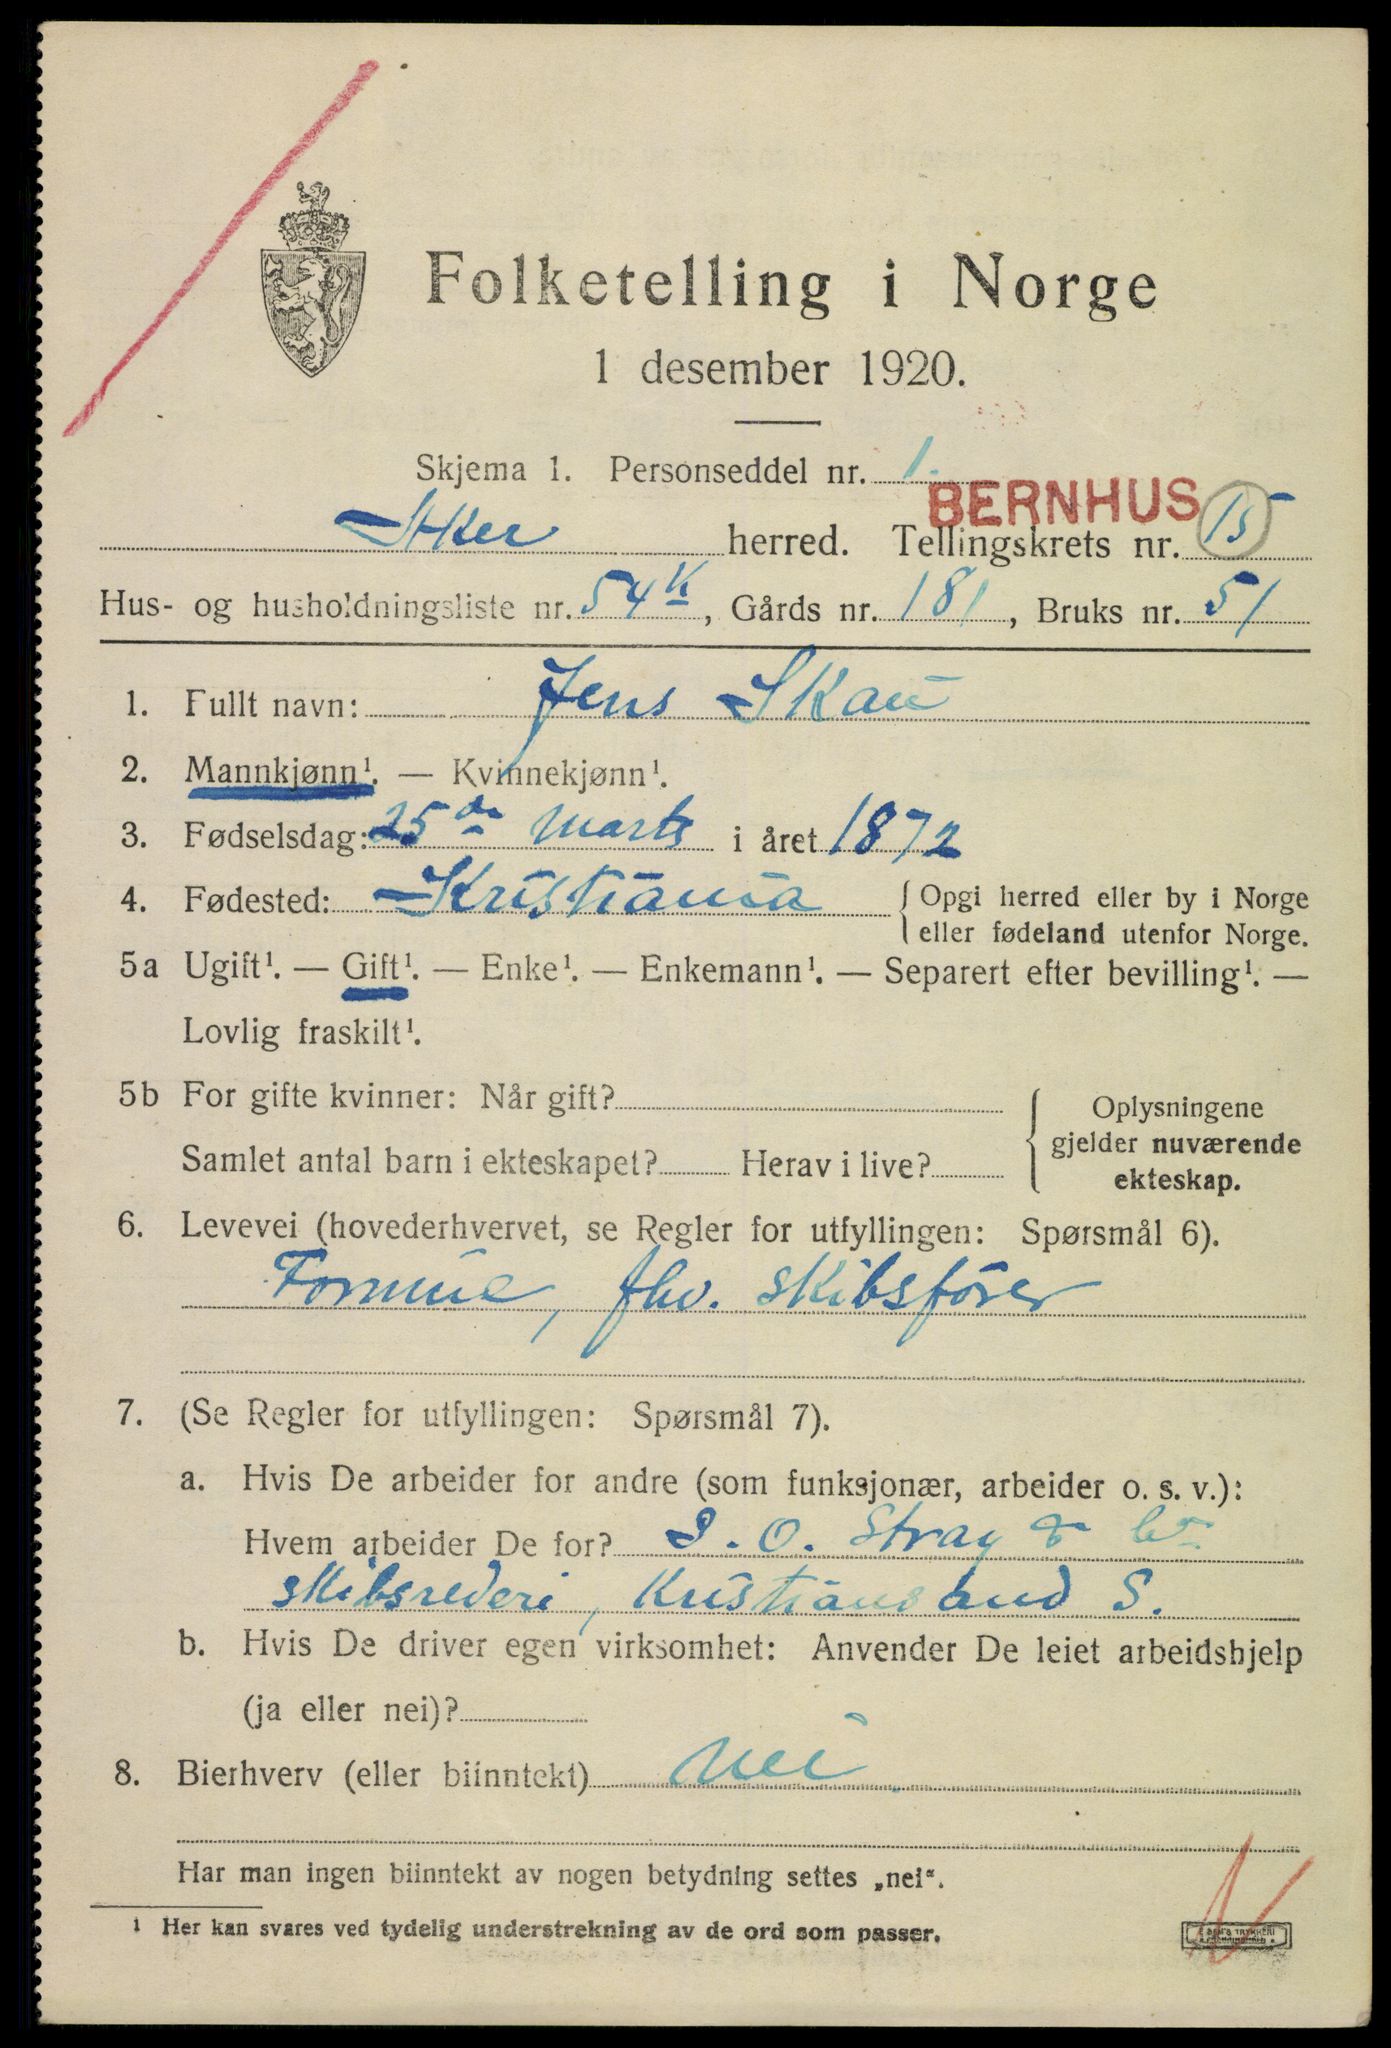 Folketelling i Norge
1 desember 1920.
Skjema 1. Personseddel nr. 1.
BERNHUS
Aker herred. Tellingskrets nr. 15
Hus- og husholdningsliste nr. 54 K, Gårds nr. 181, Bruks nr. 51
1. Fullt navn: Jens Skau
2. Mannkjønn¹. — Kvinnekjønn¹.
3. Fødselsdag: 25de Marts i året 1872
4. Fødested: Kristiania { Opgi herred eller by i Norge
eller fødeland utenfor Norge.
5a Ugift¹. — Gift¹. — Enke¹. — Enkemann¹. — Separert efter bevilling¹. —
Lovlig fraskilt¹.
5b For gifte kvinner: Når gift? { Oplysningene
gjelder nuværende
Samlet antal barn i ekteskapet? Herav i live?
ekteskap.
6. Levevei (hovederhvervet, se Regler for utfyllingen: Spørsmål 6).
Formue, fhv. skibsfører
7. (Se Regler for utfyllingen: Spørsmål 7).
a. Hvis De arbeider for andre (som funksjonær, arbeider o. s. v.):
Hvem arbeider De for? S. O. Stray & Co
skibsrederi, Kristiansand S.
b. Hvis De driver egen virksomhet: Anvender De leiet arbeidshjelp
(ja eller nei)?
8. Bierhverv (eller biinntekt) nei.
Har man ingen biinntekt av nogen betydning settes „nei“.
¹ Her kan svares ved tydelig understrekning av de ord som passer.